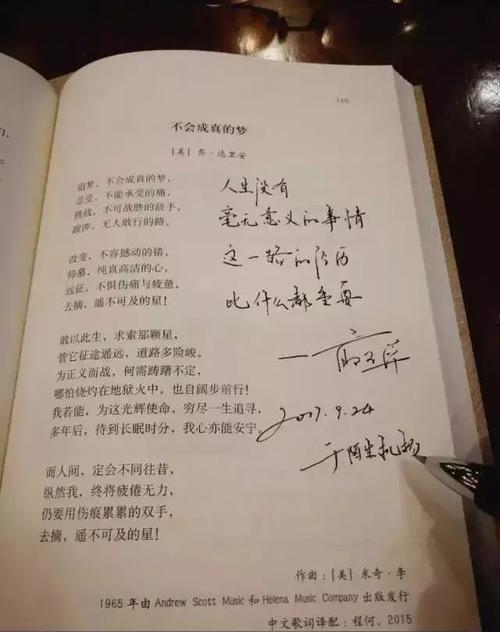 169
不会成真的梦
［美］乔·达里安
追梦，不会成真的梦，
忍受，不能承受的痛，
挑战，不可战胜的敌手，
跋涉，无人敢行的路。
改变，不容撼动的错，
仰慕，纯真高洁的心，
远征，不惧伤痛与疲惫，
去摘，遥不可及的星！
敢以此生，求索那颗星，
管它征途遥远，道路多险峻。
为正义而战，何需踌躇不定，
哪怕烧灼在地狱火中，也自阔步前行！
我若能，为这光辉使命，穷尽一生追寻，
多年后，待到长眠时分，我心亦能安宁。
而人间，定会不同往昔，
纵然我，终将疲倦无力，
仍要用伤痕累累的双手，
去摘，遥不可及的星！
人生没有
毫无意义的事情
这一路的经历
比什么都重要
2017.9.24
于陌生机场
作曲：［美］米奇·李
1965 年由 Andrew Scott Music 和 Helena Music Company 出版发行
中文歌词译配：程何，2015